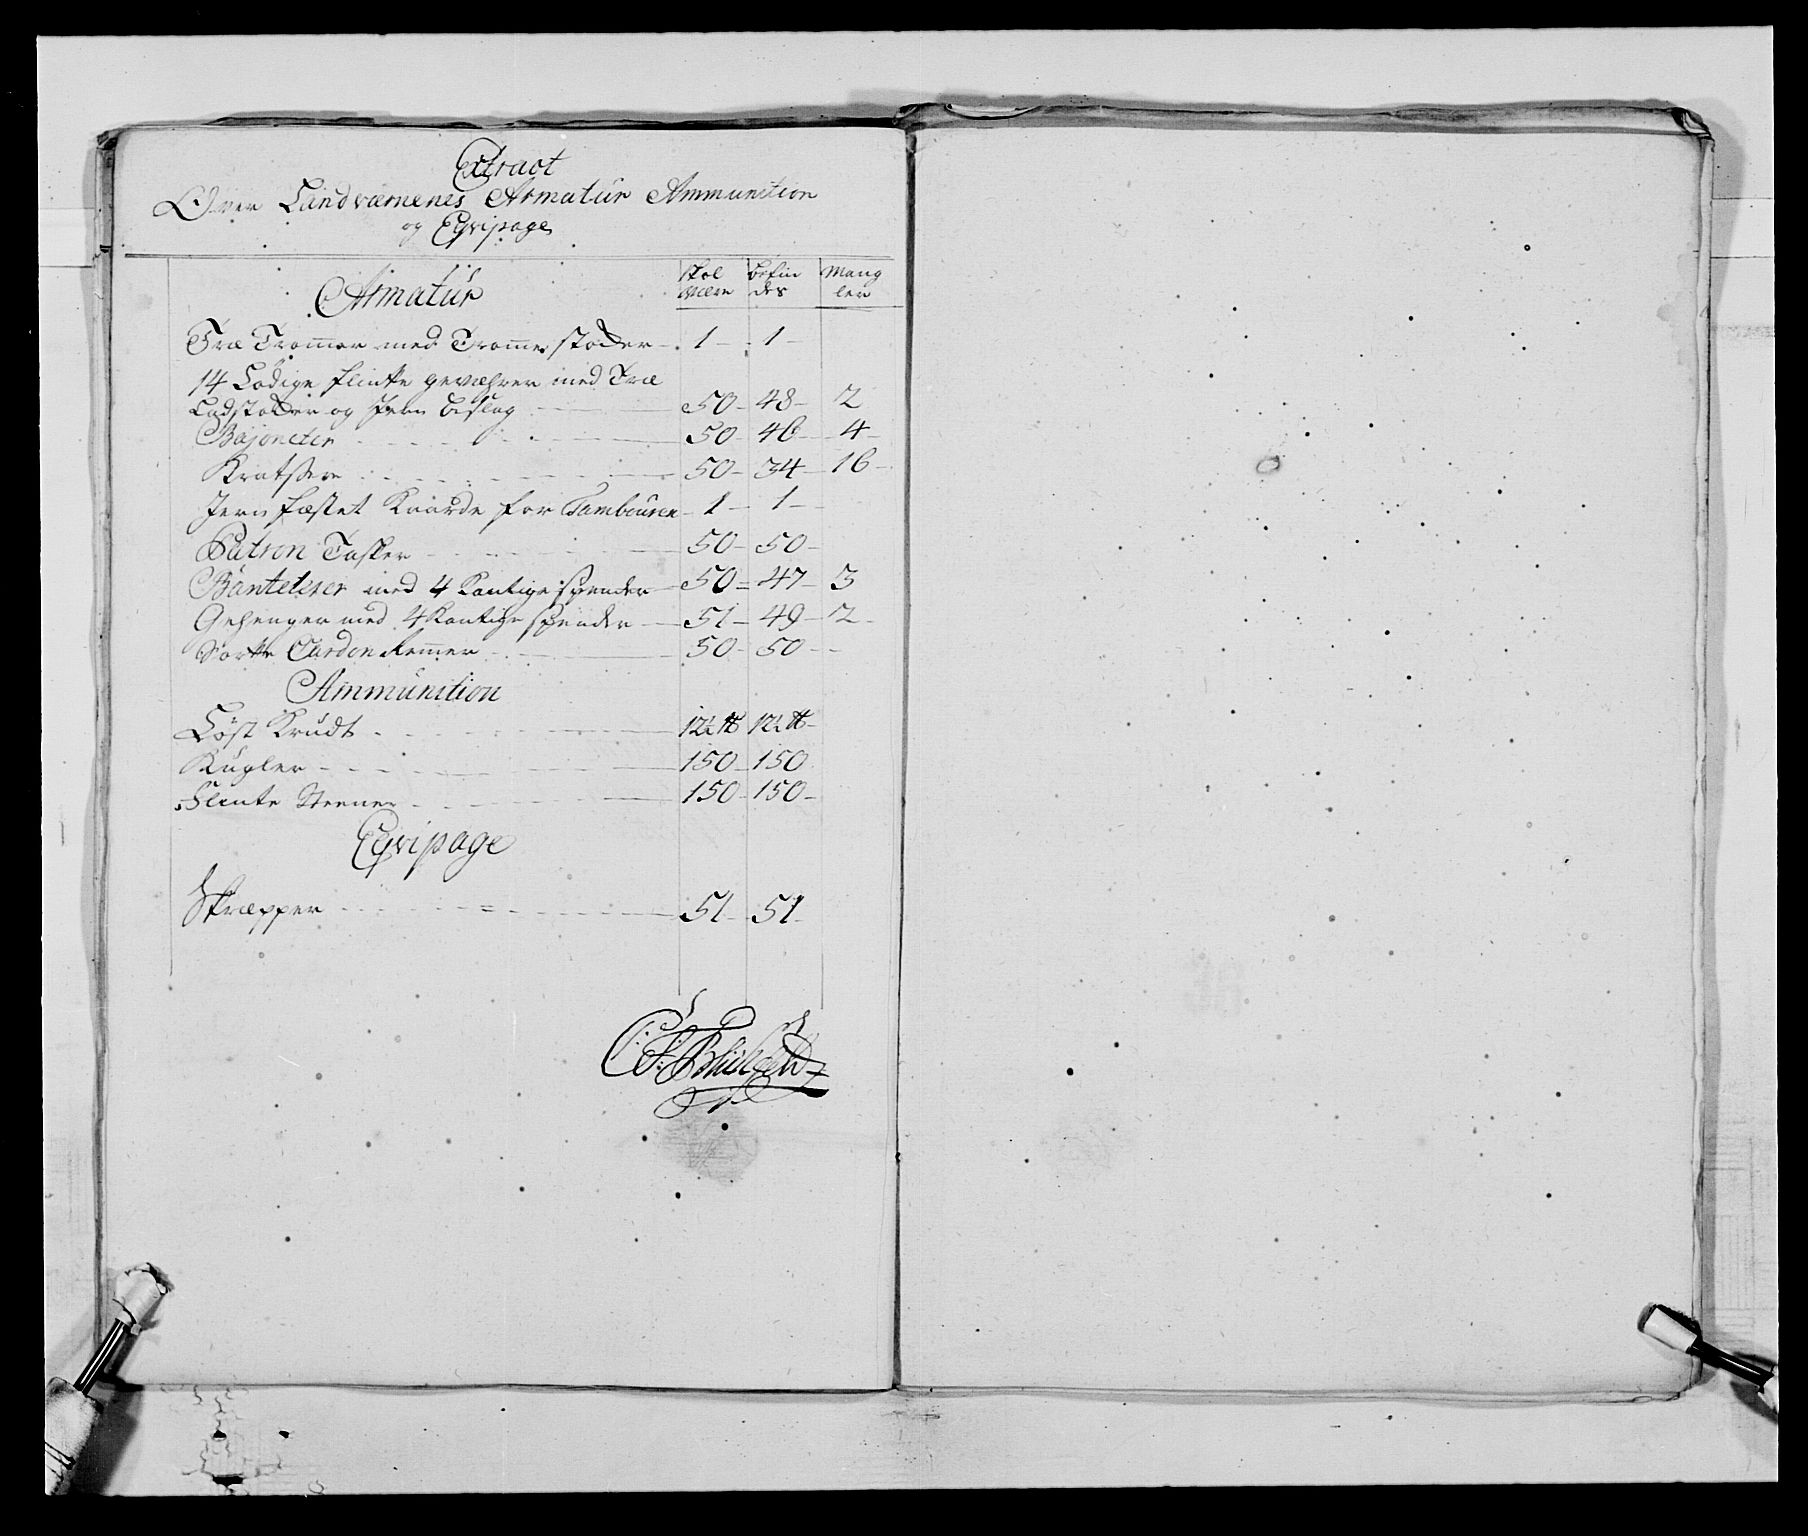 Extract
Over Landværnenes Armatür Ammunition
og Eqvipage
Armatür
skal være
befin des
Mang ler
Træ Trommer med Tromme stokker - 1 - 1 -
14 Lodige flinte geværer med Træ
Ladstokker og Jern beslag - 50 - 48 - 2
Bajonetter - 50 - 46 - 4 -
Kratzser - 50 - 34 - 16 -
Jern fæstet Kaarde for Tambouren - 1 - 1 -
Patron Tasker - 50 - 50 -
Bantelerer med 4 Kantige spender - 50 - 47 - 3
Gehenger med 4 Kantige spender - 51 - 49 - 2 -
Sorte Remmer - 50 - 50 - -
Ammünition
Löst Krudt - 12½ ℔ 12½ ℔ -
Kugler - 150 - 150
Flinte Steener - 150 - 150 -
Eqvipage
Skræpper - 51 - 51 -